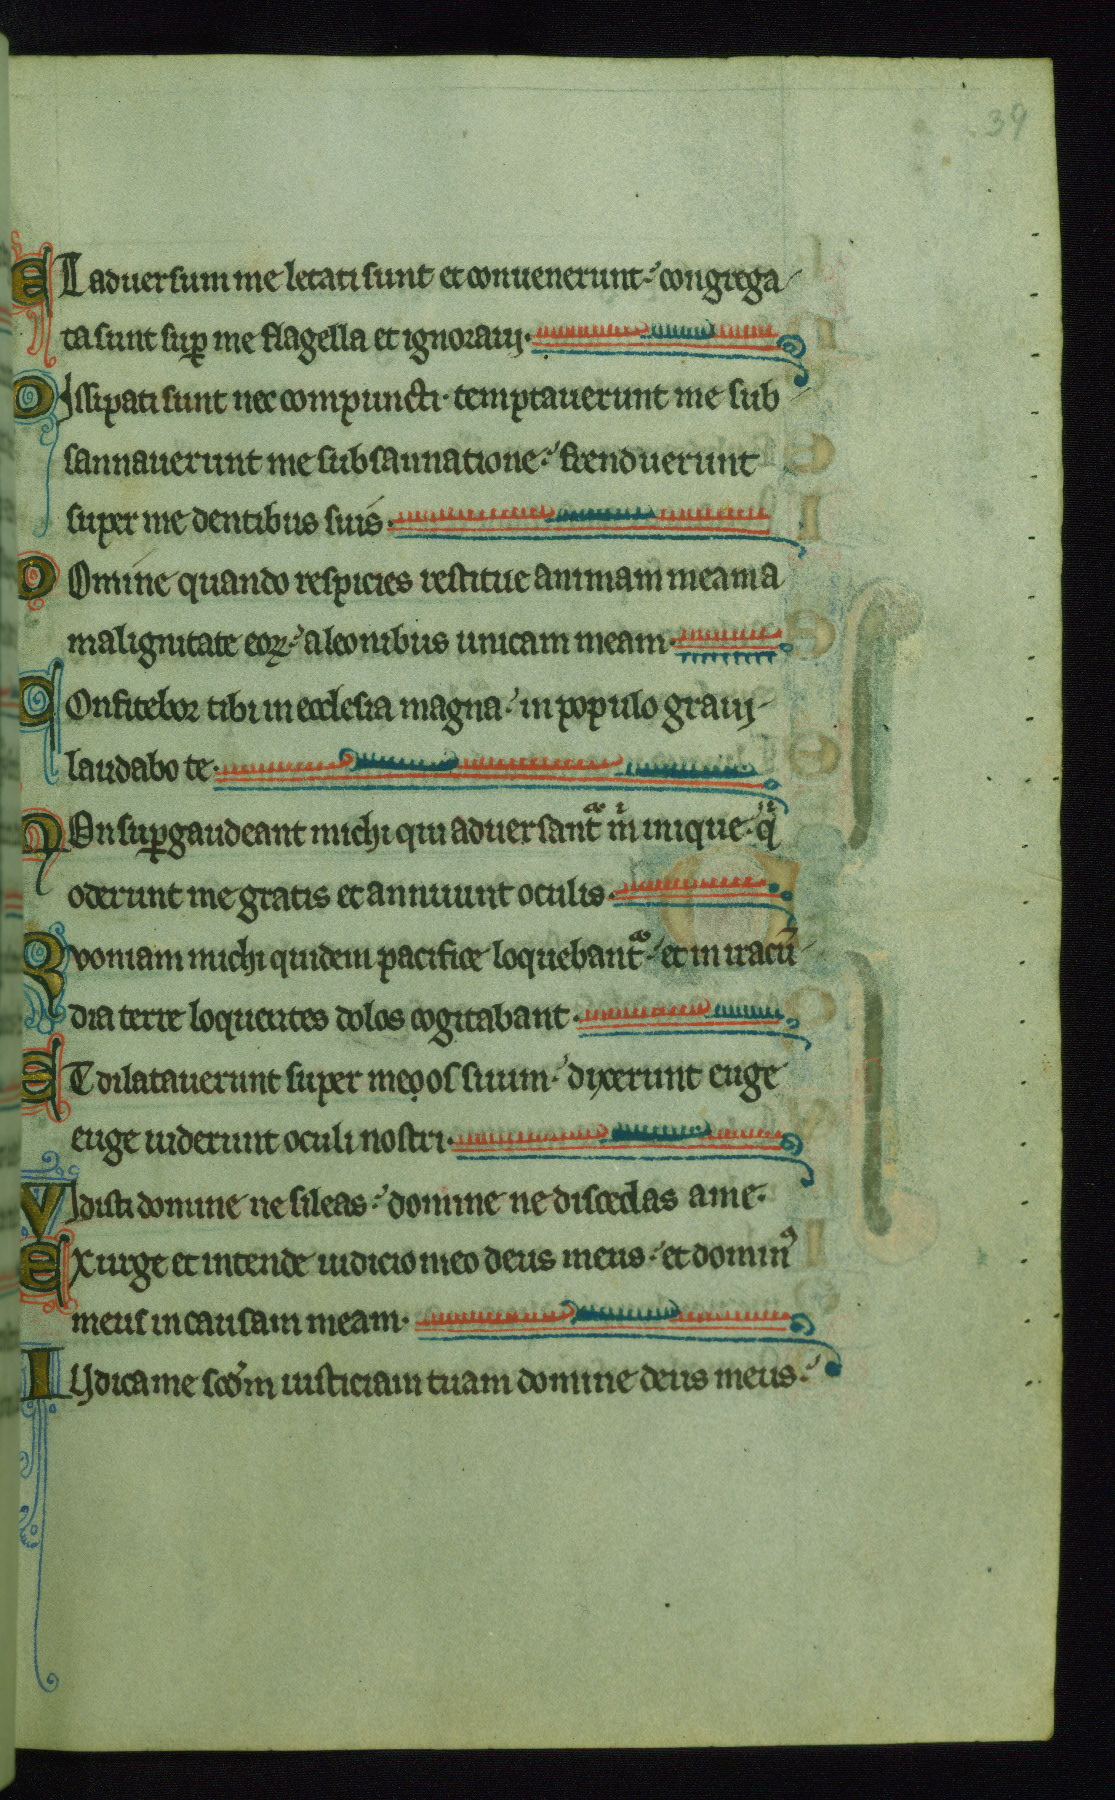 39
ET aduersum me letati sunt et conuenerunt· congrega
ta sunt sup̱ me flagella et ignoraui·
DIssipati sunt nec compuncti· temptauerunt me sub
sannauerunt me subsannatione· frenduerunt
super me dentibus suis·
DOmine quando respicies restitue animam meam a
malignitate eoꝝ· a leonibus unicam meam·
COnfitebor tibi in ecclesia magna· in populo graui
laudabo te·
NOn sup̱gaudeant michi qui aduersant᷑ m̄ inique· q̄
oderunt me gratis et annuunt oculis·
Quoniam michi quidem pacifice loquebant᷑· et in iracū
dia terre loquentes dolos cogitabant·
ET dilatauerunt super meọ os suum· dixerunt euge
euge uiderunt oculi nostri·
VIdisti domine ne sileas· domine ne discedas a me·
EXurge et intende iudicio meo deus meus· et domin᷒
meus in causam meam·
IVdica me scd̄m iusticiam tuam domine deus meus·